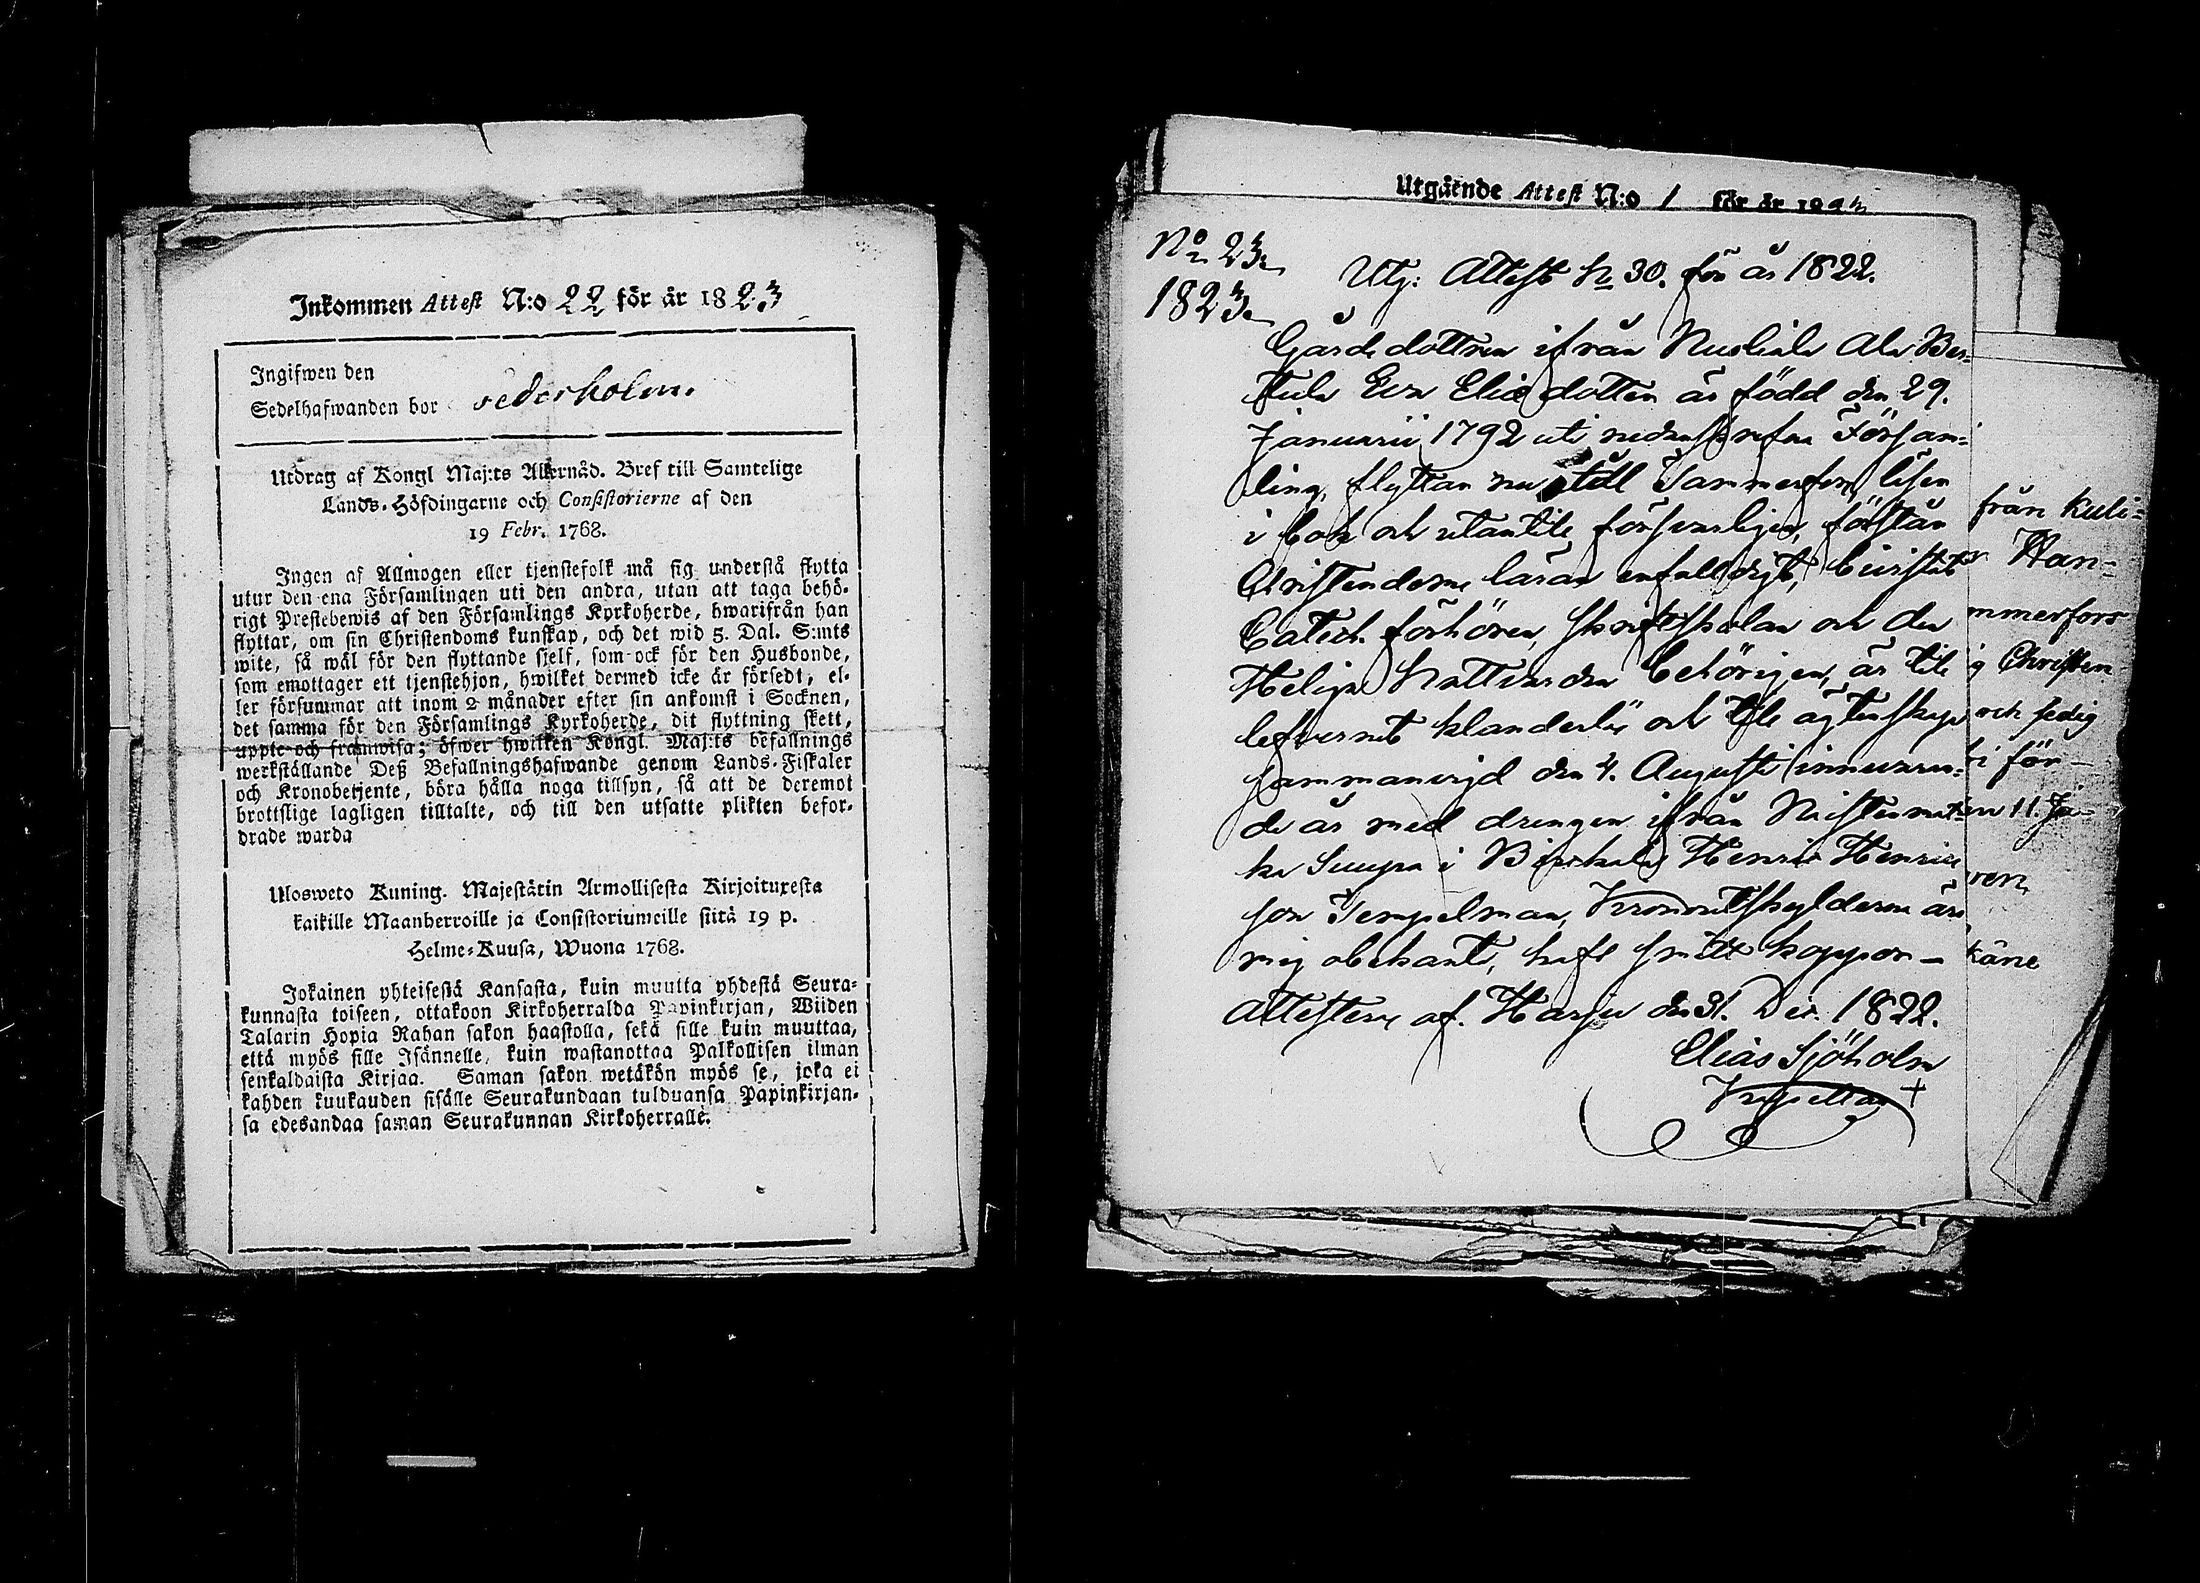 Inkommen Attest N:o 22 för år 1823
Ingifwen den
Sedelhafwanden bor
Utdrag af Kongl Maj:ts Allernåd. Bref till Samtelige
Lands-Höfdingarne och Consistorierne af den
19 Febr. 1768.
Ingen af Allmogen eller tjenstefolk må sig understå flytta
utur den ena Församlingen uti den andra, utan att taga behö-
rigt Prestebewis af den Församlings Kyrkoherde, hwarifrån han
flyttar, om sin Christendoms kunskap, och det wid 5. Dal. S:mts
wite, så wäl för den flyttande sjelf, som ock för den Husbonde,
som emottager ett tjenstehjon, hwilket dermed icke är försedt, el-
ler försummar att inom 2 månader efter sin ankomst i Socknen,
det samma för den Församlings Kyrkoherde, dit flyttning skett,
uppte och framwisa; öfwer hwilken Kongl. Maj:ts befallnings
werkställande Deß Befallningshafwande genom Lands-Fiskaler
och Kronobetjente, böra hålla noga tillsyn, så att de deremot
brottslige lagligen tilltalte, och till den utsatte plikten befor-
drade warda
Ulosweto Kuning. Majestätin Armollisesta Kirjoituxesta
kaikille Maanherroille ja Consistoriumeille siitä 19 p.
Helme-Kuusa, Wuona 1768.
Jokainen yhteisestä Kansasta, kuin muutta yhdestä Seura-
kunnasta toiseen, ottakoon Kirkoherralda Papinkirjan, Wiiden
Talarin Hopia Rahan sakon haastolla, sekä sille kuin muuttaa,
että myös sille Isännelle, kuin wastanottaa Palkollisen ilman
senkaldaista Kirjaa. Saman sakon wetäkön myös se, joka ei
kahden kuukauden sisälle Seurakundaan tulduansa Papinkirjan-
sa edesandaa saman Seurakunnan Kirkoherralle.
Utgående Attest N:o 1 för år
No 23
1823
Utg: Attest No 30. för år 1822.
Gårdsdottren ifrån Ala Ber-
tula Eva Eliædotter är född den 29.
Januarii 1792 uti nedanskrefne Försam-
ling, flyttar nu till Tammerfors, läser
i bok och utantill försvarligen, förstår
Christendoms läran enfaldigt, bevistat
Catech. förhören, skriftskolan och den
Heliga Nattvarden behörigen, är till
lefvernet klanderlös och till ägtenskap
sammanvigd den 4. Augusti innevaran-
de år med drengen ifrån
i Birkala Henric Henrics
son Tempelman, Kronoutskylderna äro
mig obekante, haft koppor –
Attesterar af. Harju den 31. Dec. 1822.
Elias Sjöholm
Kapellan
från Kuli-
Han-
mmerfors
g Christen-
och sedig
i för-
11. Ja-